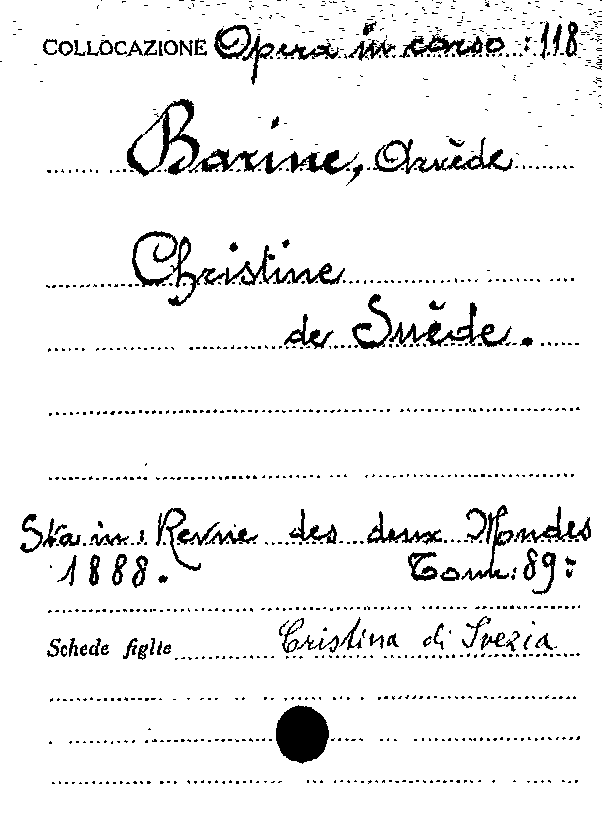 COLLOCAZIONE Opera in corso : 118
Barine, Arvède
Christine
de Suède.
Sta in : Revue des deux Mondes
1888. Tom: 89:
Schede figlie Cristina di Svezia